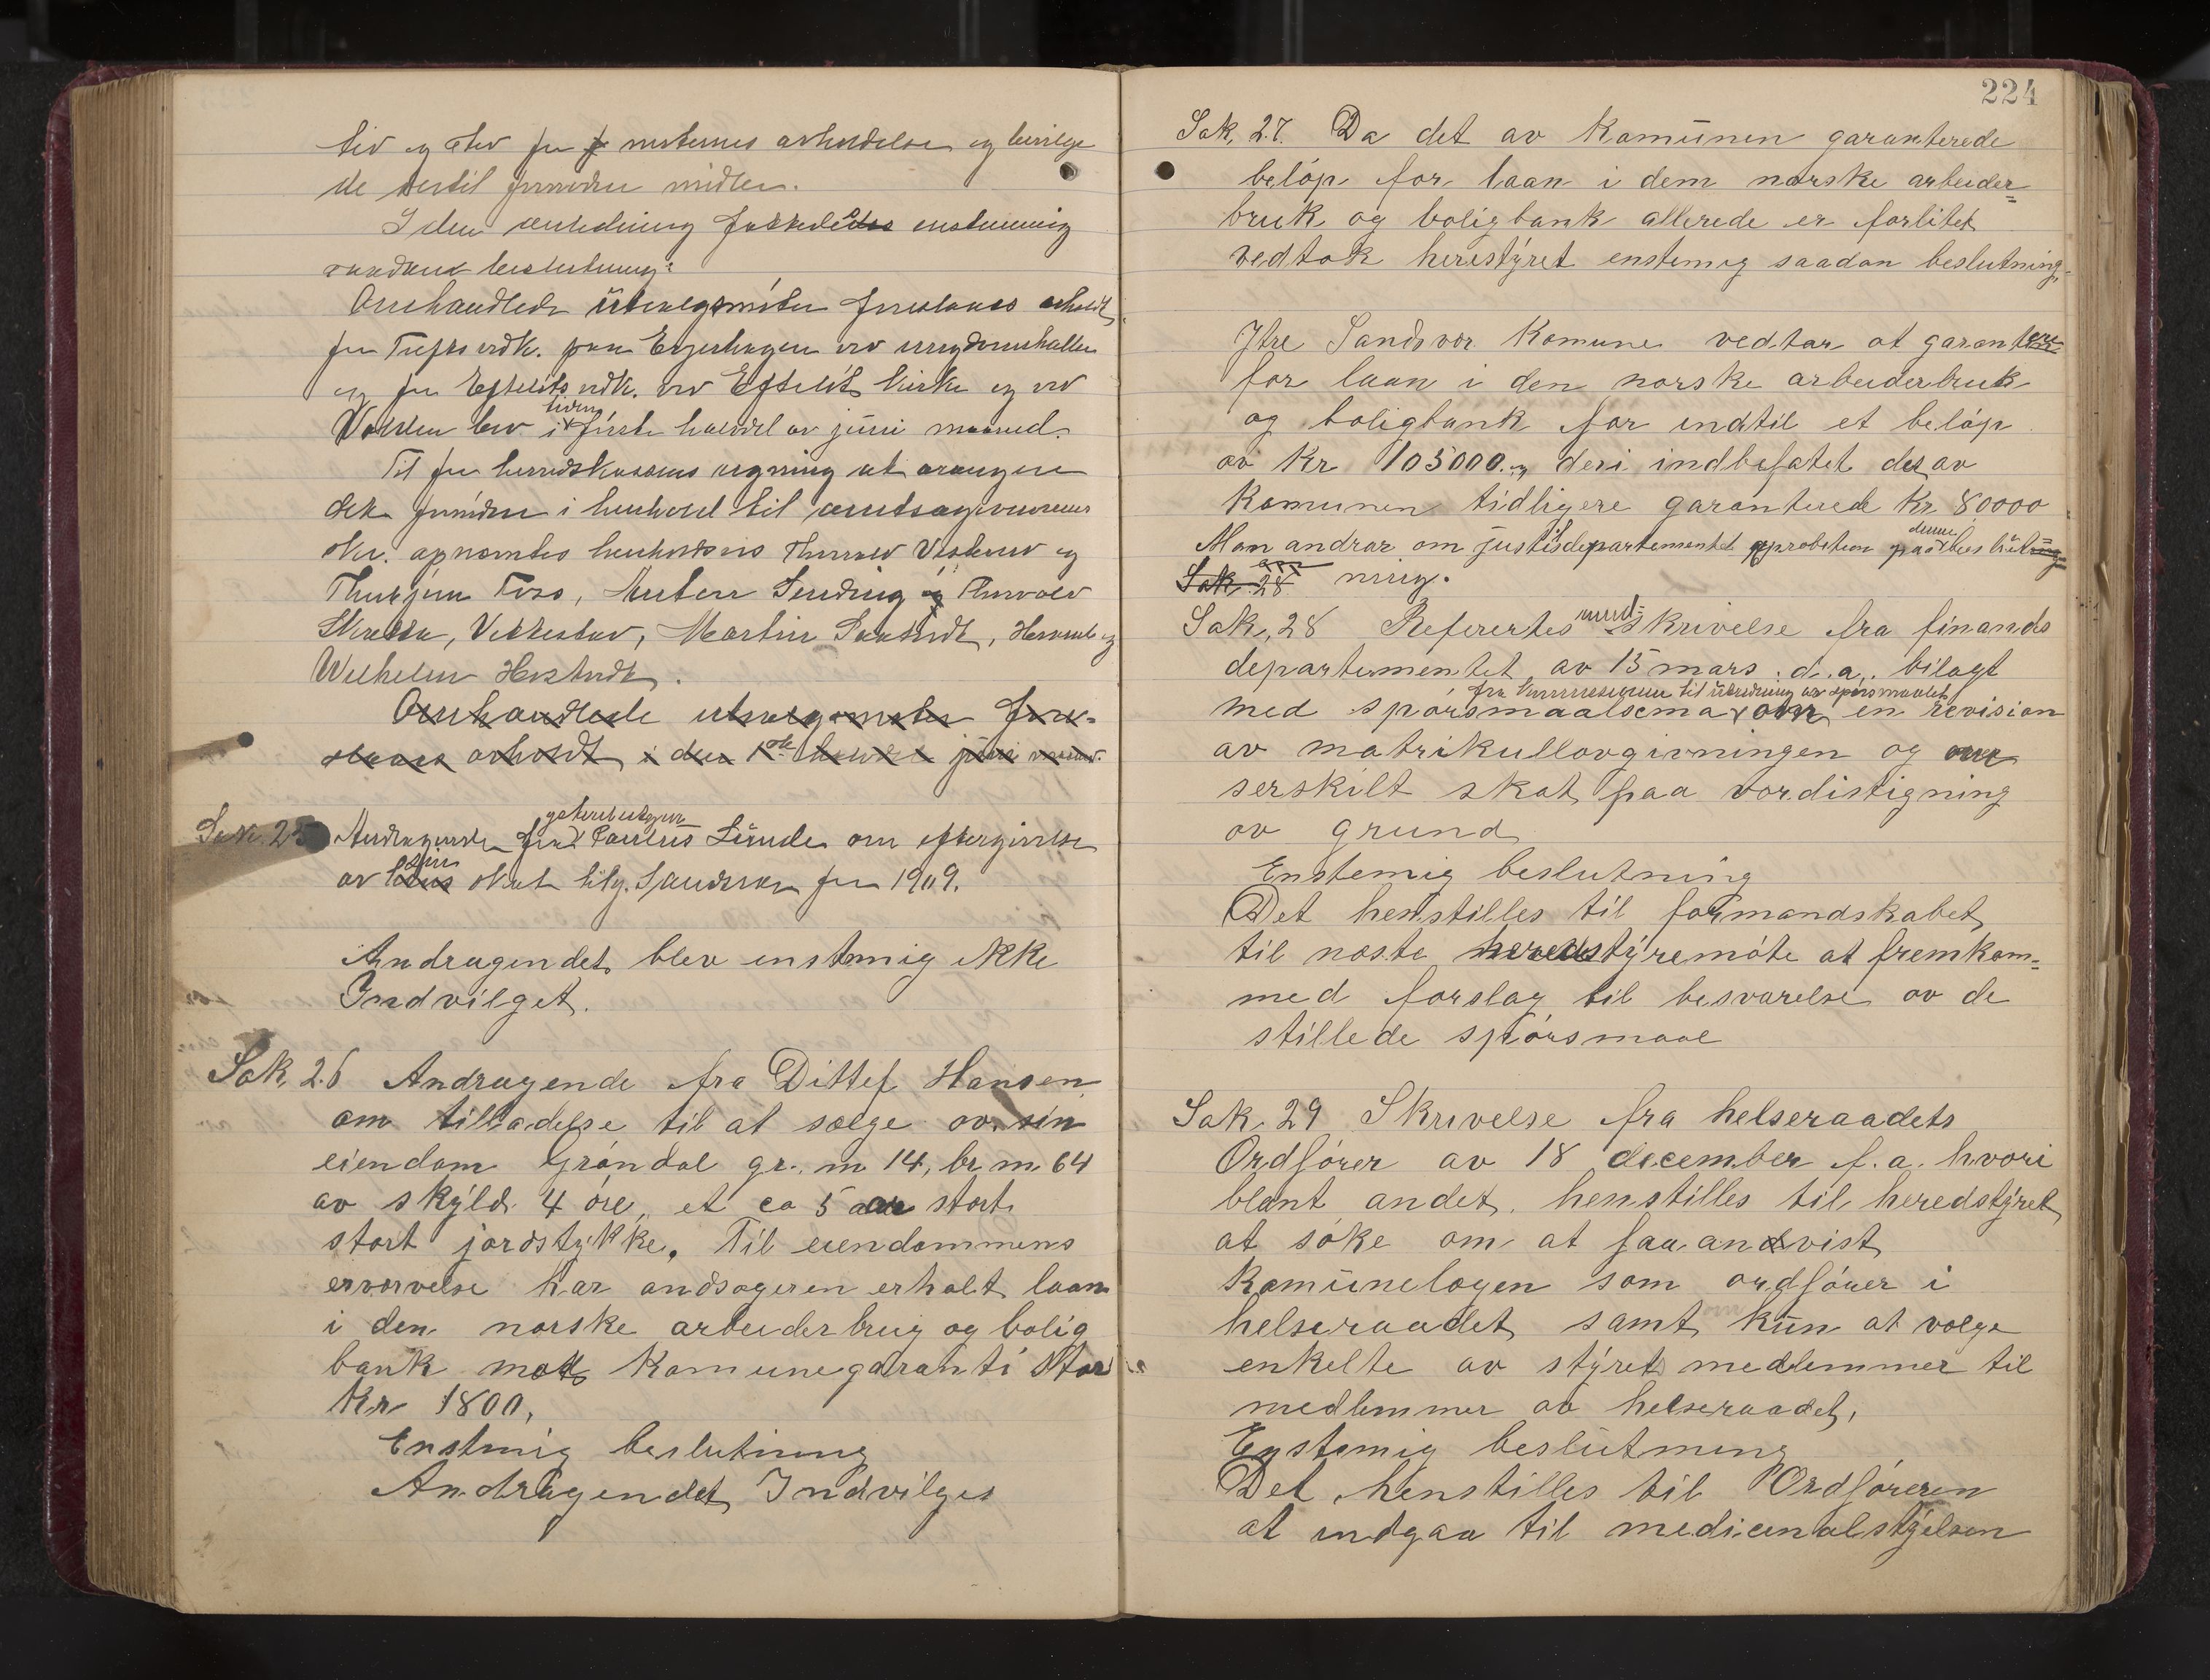 tid og sted for møternes avholdelse og bevilge
de dertil fornødne midler.
I den anledning enstemmig
saadan beslutning:
Omhandlede utvalgsmøter foreslaaes avholdt
for ved ungdomshallen
og for Eftelöts vdk. ved Eftelöts kirke og ved
i tiden første halvdel av juni maaned.
Til for herredskassens regning at arangere
det fornödne i henhold til
skr. opnævntes henholdsvis og
Martin
Wilhelm
Omhandlede utvalgsmøter fore-
slaaes avholdt i den 1ste halvdel juni maaned.
Sak 25 Andragende fra gaterbetjent Paulus Lunde om eftergivelse
av sin skat til y. Sandsvær for 1909.
Andragendet blev enstemig ikke
Indvilget.
Sak 26 Andragende fra Dittef Hansen
om tilladelse til at sælge av sin
eiendom Gröndal gr. m 14, br m 64
av skyld 4 öre, et ca 5 ar stort
stort jordstykke. Til eiendommens
ervervelse har andsøgeren erholt laan
i den norske arbeiderbrug og bolig
bank mot Komunegaranti stor
Kr 1800,
Enstmig beslutning
Andragendet Indvilges
224
Sak, 27. Da det av Komunen garanterede
belöp for laan i dem norske arbeider=
bruk og boligbank allerede er forlitet
vedtok herestyret enstemig saadan beslutning.
Ytre Sandsvær Komune vedtar at garantere
for laan i den norske arbeiderbruk
og boligbank for indtil et belöp
av Kr 105000.- deri indbefatet det av
Komunen tidligere garanterede Kr 80000
Man andrar om justisdepartementet aprobation paa denne beslut
Sak 28 ning.
Sak, 28 Refereres rund= skrivelse fra finands
departementet av 15 mars d.a. bilagt
med spörsmaalsema fra kommissionen til utredning av spörsmaalet om en revision
av matrikullovgivningen og om
serskilt skat paa verdistigning
av grund
Enstemig beslutning
Det henstilles til formandskabet
til næste heredstyremöte at fremkom=
med forslag til besvarelse av de
stillede spörsmaal
Sak, 29 Skrivelse fra helseraadets
Ordförer av 18 december f.a. hvori
blant andet, henstilles til heredstyret
at söke om at faa andvist
Komunelægen som ordförer i
helseraadet samt kun at vælge
enkelte av styrets medlemmer til
medlemmer av helseraadet,
Enstemig beslutning
Det henstilles til Ordföreren
at indgaa til medicinalstyelsen